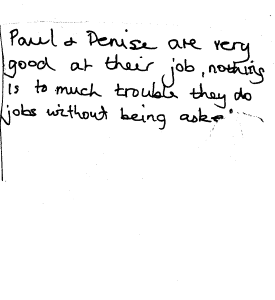 Paul & Denise are very
good at their job, nothing
is to much trouble they do
jobs without being aske